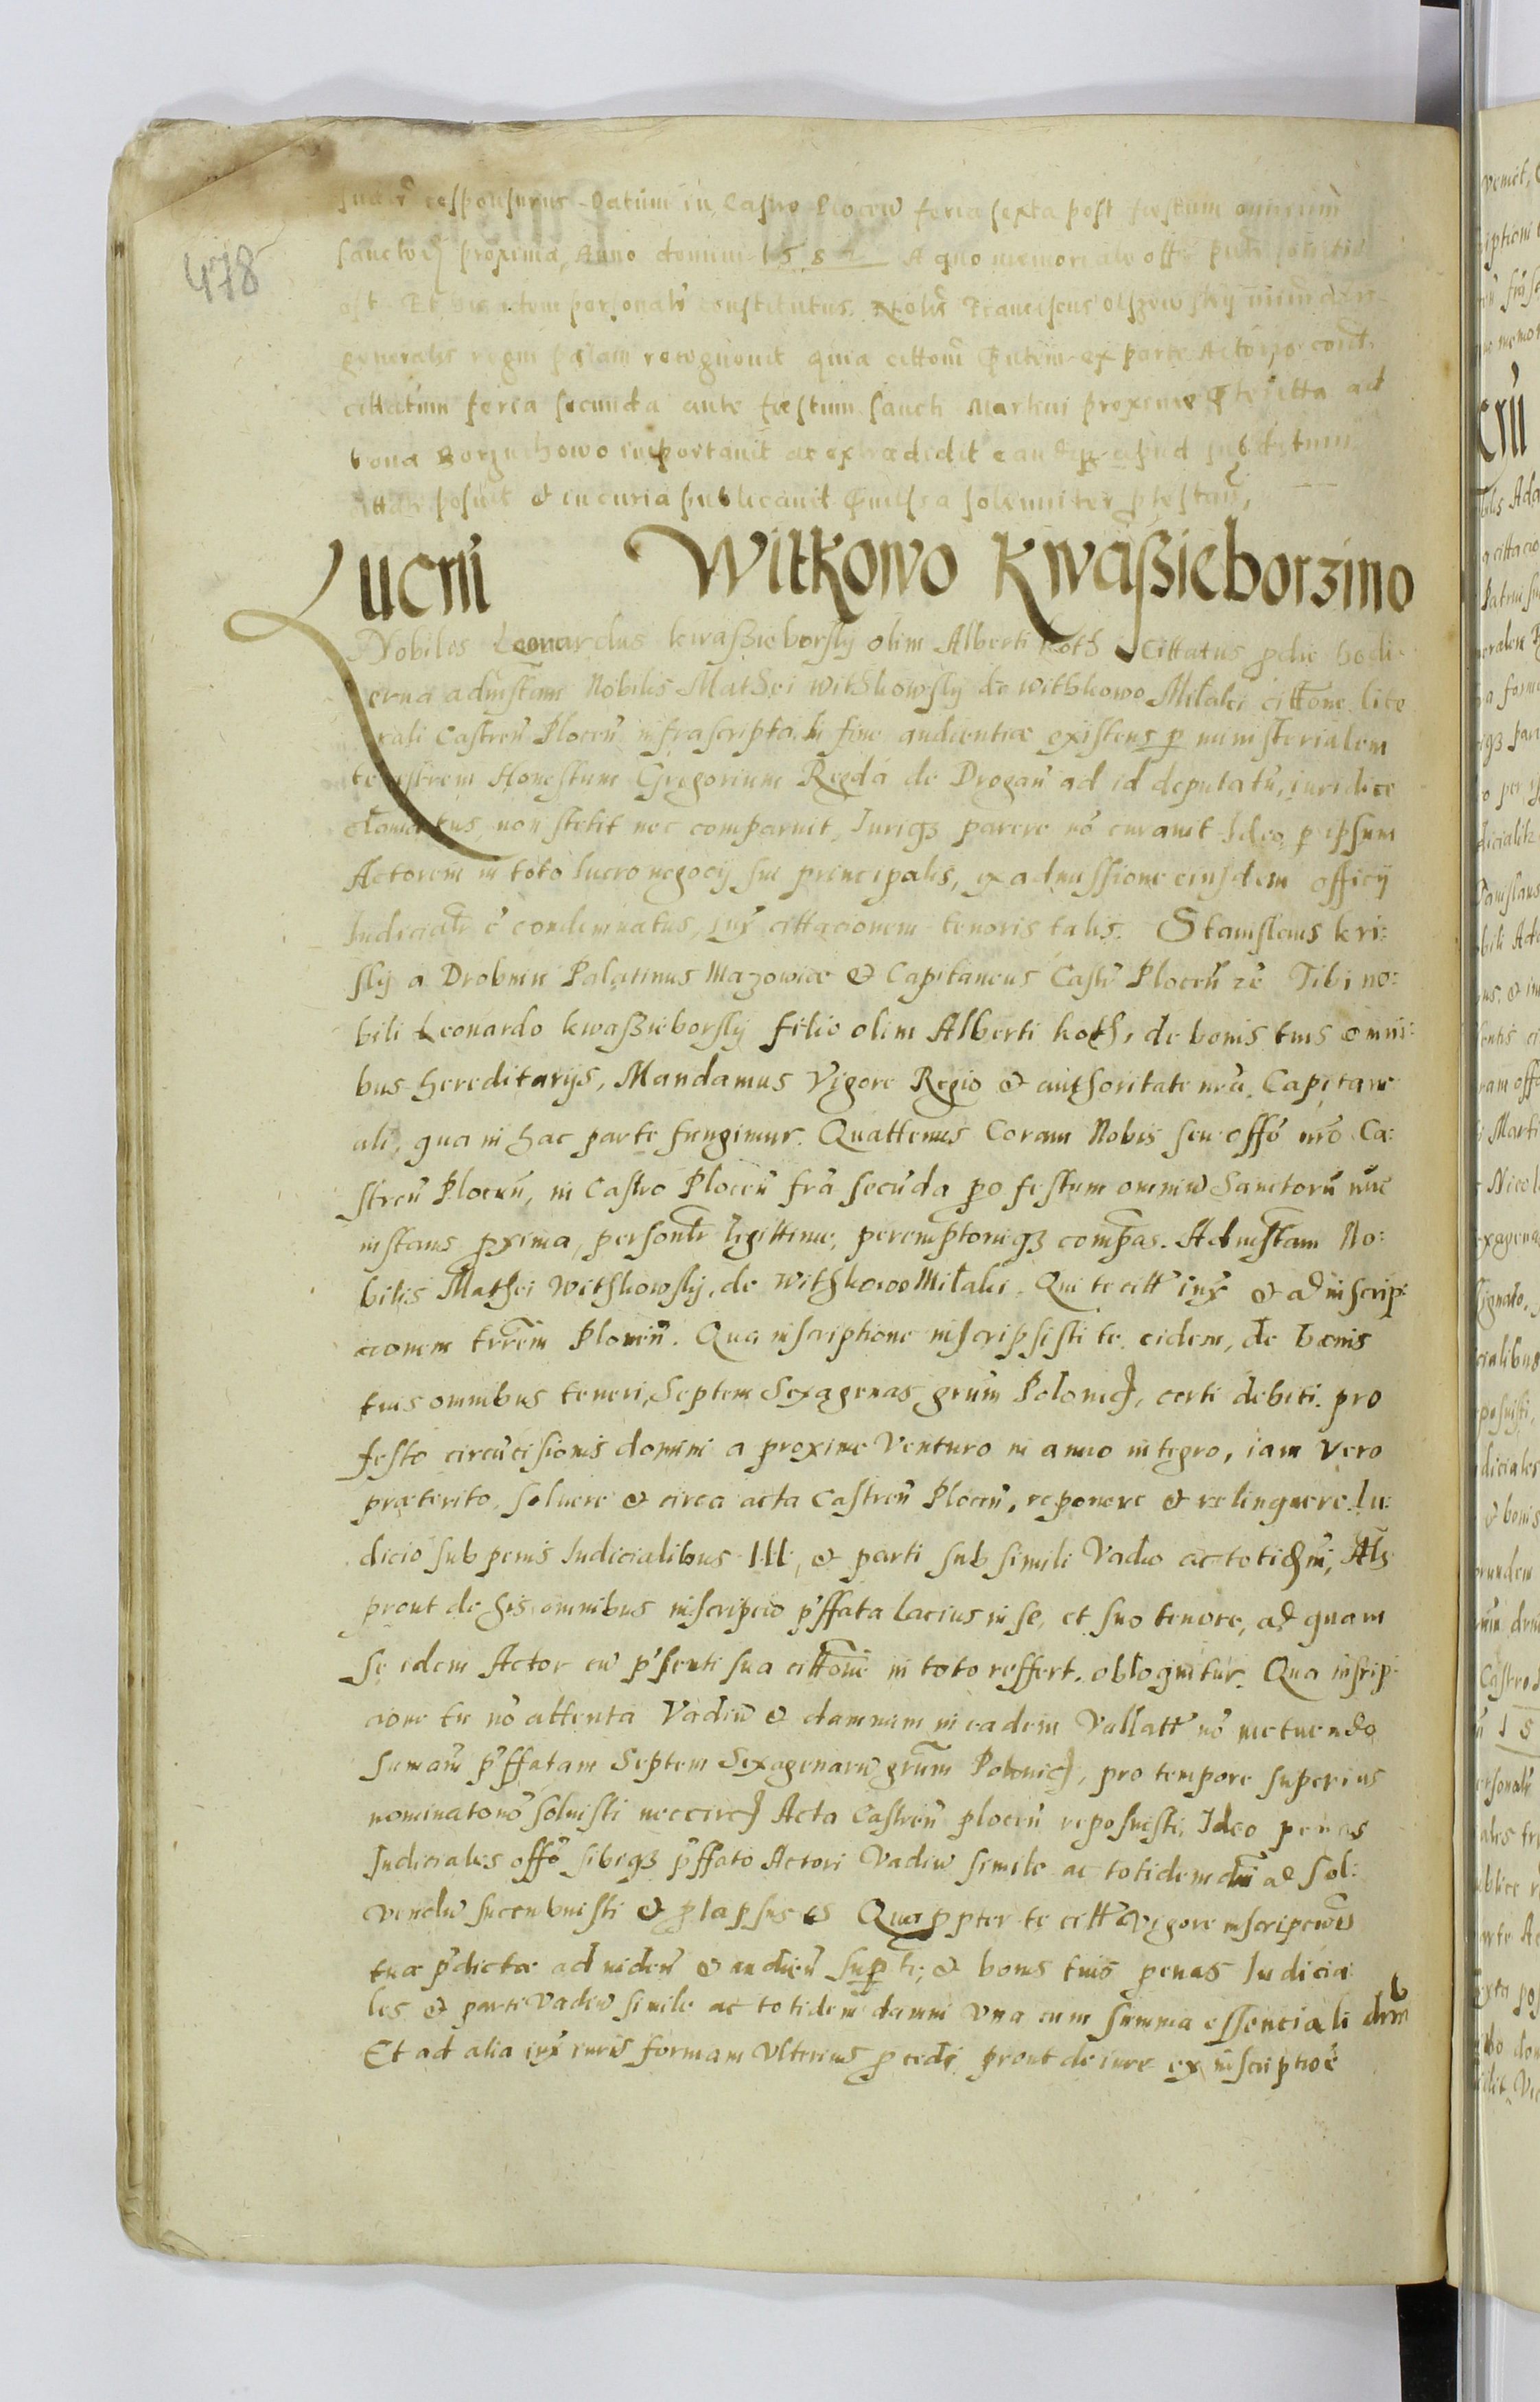 478
responsurus Datum in Castro Plocen feria sexta post festum omnium
sanctorum proxima, Anno domini 1582 A quo memoriale
est Et ibidem personalr constitutus Nobilis Franciscus Olszewskij
generalis regni palam recognovit quia cittom ex parte Actoris
cittatum feria secunda ante festum Sancti Martini proxime ad
bona importavit ac extradedit
posuit & in curia publicavit solenniter
Lucrū Witkowo Kwaßieborzino
Nobiles Leonardus kwaßieborskÿ olim Alberti koth Cittatus p die hodi
erna ad instam Nobilis Mathei Withkowskÿ de Withkowo Milalci cittone lite
rali Castreñ Ploceñ infrascripta. In fine audientiæ existens p ministerialem
terrestrem Honestum Gregorium Regda de Drogan ad id deputatū, iuridice
clamatus non stetit nec comparuit Juriqz parere nō curavit Ideo p ipsum
Actorem in toto lucro negocij sui principalis, ex admissione eiusdem officij
Judicialr ē condemnatus, iux cittacionem tenoris talis. Stanislaus kri:
skÿ a Drobnin Palatinus Mazowiæ & Capitaneus Castr Ploceñ zc̄ Tibi no:
bili Leonardo kwaßieborskÿ filio olim Alberti koth, de bonis tuis omni:
bus hereditarijs, Mandamus Vigore Regio & authoritate nrā Capitane
ali, qua in hac parte fungimur. Quattenus Coram Nobis seu offō nrō Ca:
streñ Ploceñ, in Castro Ploceñ frā secūda po festum omniū Sanctorū nūc
instans pxima, personlr legittime, peremptorieqz compas. Ad instam No:
bilis Mathei Withkowskÿ, de Withkowo Milalci. Qui te citt iux & ad inscrip
cionem trrem Ploceñ. Qua inscriptione inscripsisti te eidem, de bonis
tuis omnibus teneri, Septem Sexagenas grūm Polonic, certi debiti pro
festo circūcisionis domini a proxime Venturo in anno integro, iam vero
præterito, solvere & circa acta Castreñ Ploceñ, reponere & relinquere Iu:
dicio sub penis Iudicialibus III, & parti sub simili Vadio ac totidem,
prout de his omnibus inscripcio pffata lacius in se, et suo tenore, ad quam
se idem Actor cū psenti sua cittone in toto reffert. obloquitur. Qua inscrip
cione tu nō attenta Vadiū & damnum in eadem Vallatt nō metuendo
Sumam pffatam Septem Sexagenarū grūm Polonic, pro tempore superius
nominato nō solvisti nec circa Acta Castreñ ploceñ reposuisti, Ideo penas
Iudiciales offō sibiqz pffato Actori Vadiū simile ac totidem ad sol:
vendū succubuisti & plapsus es Qua ppter te citt Vigore inscripcionis
tuæ pdictæ ad videñ & audieñ sup te, & bonis tuis penas Iudicia
les & parti vadiū simile ac totidem damni una cum summa essenciali
Et ad alia iux iuris formam Ulterius pcedi prout de iure ex inscriptiōe